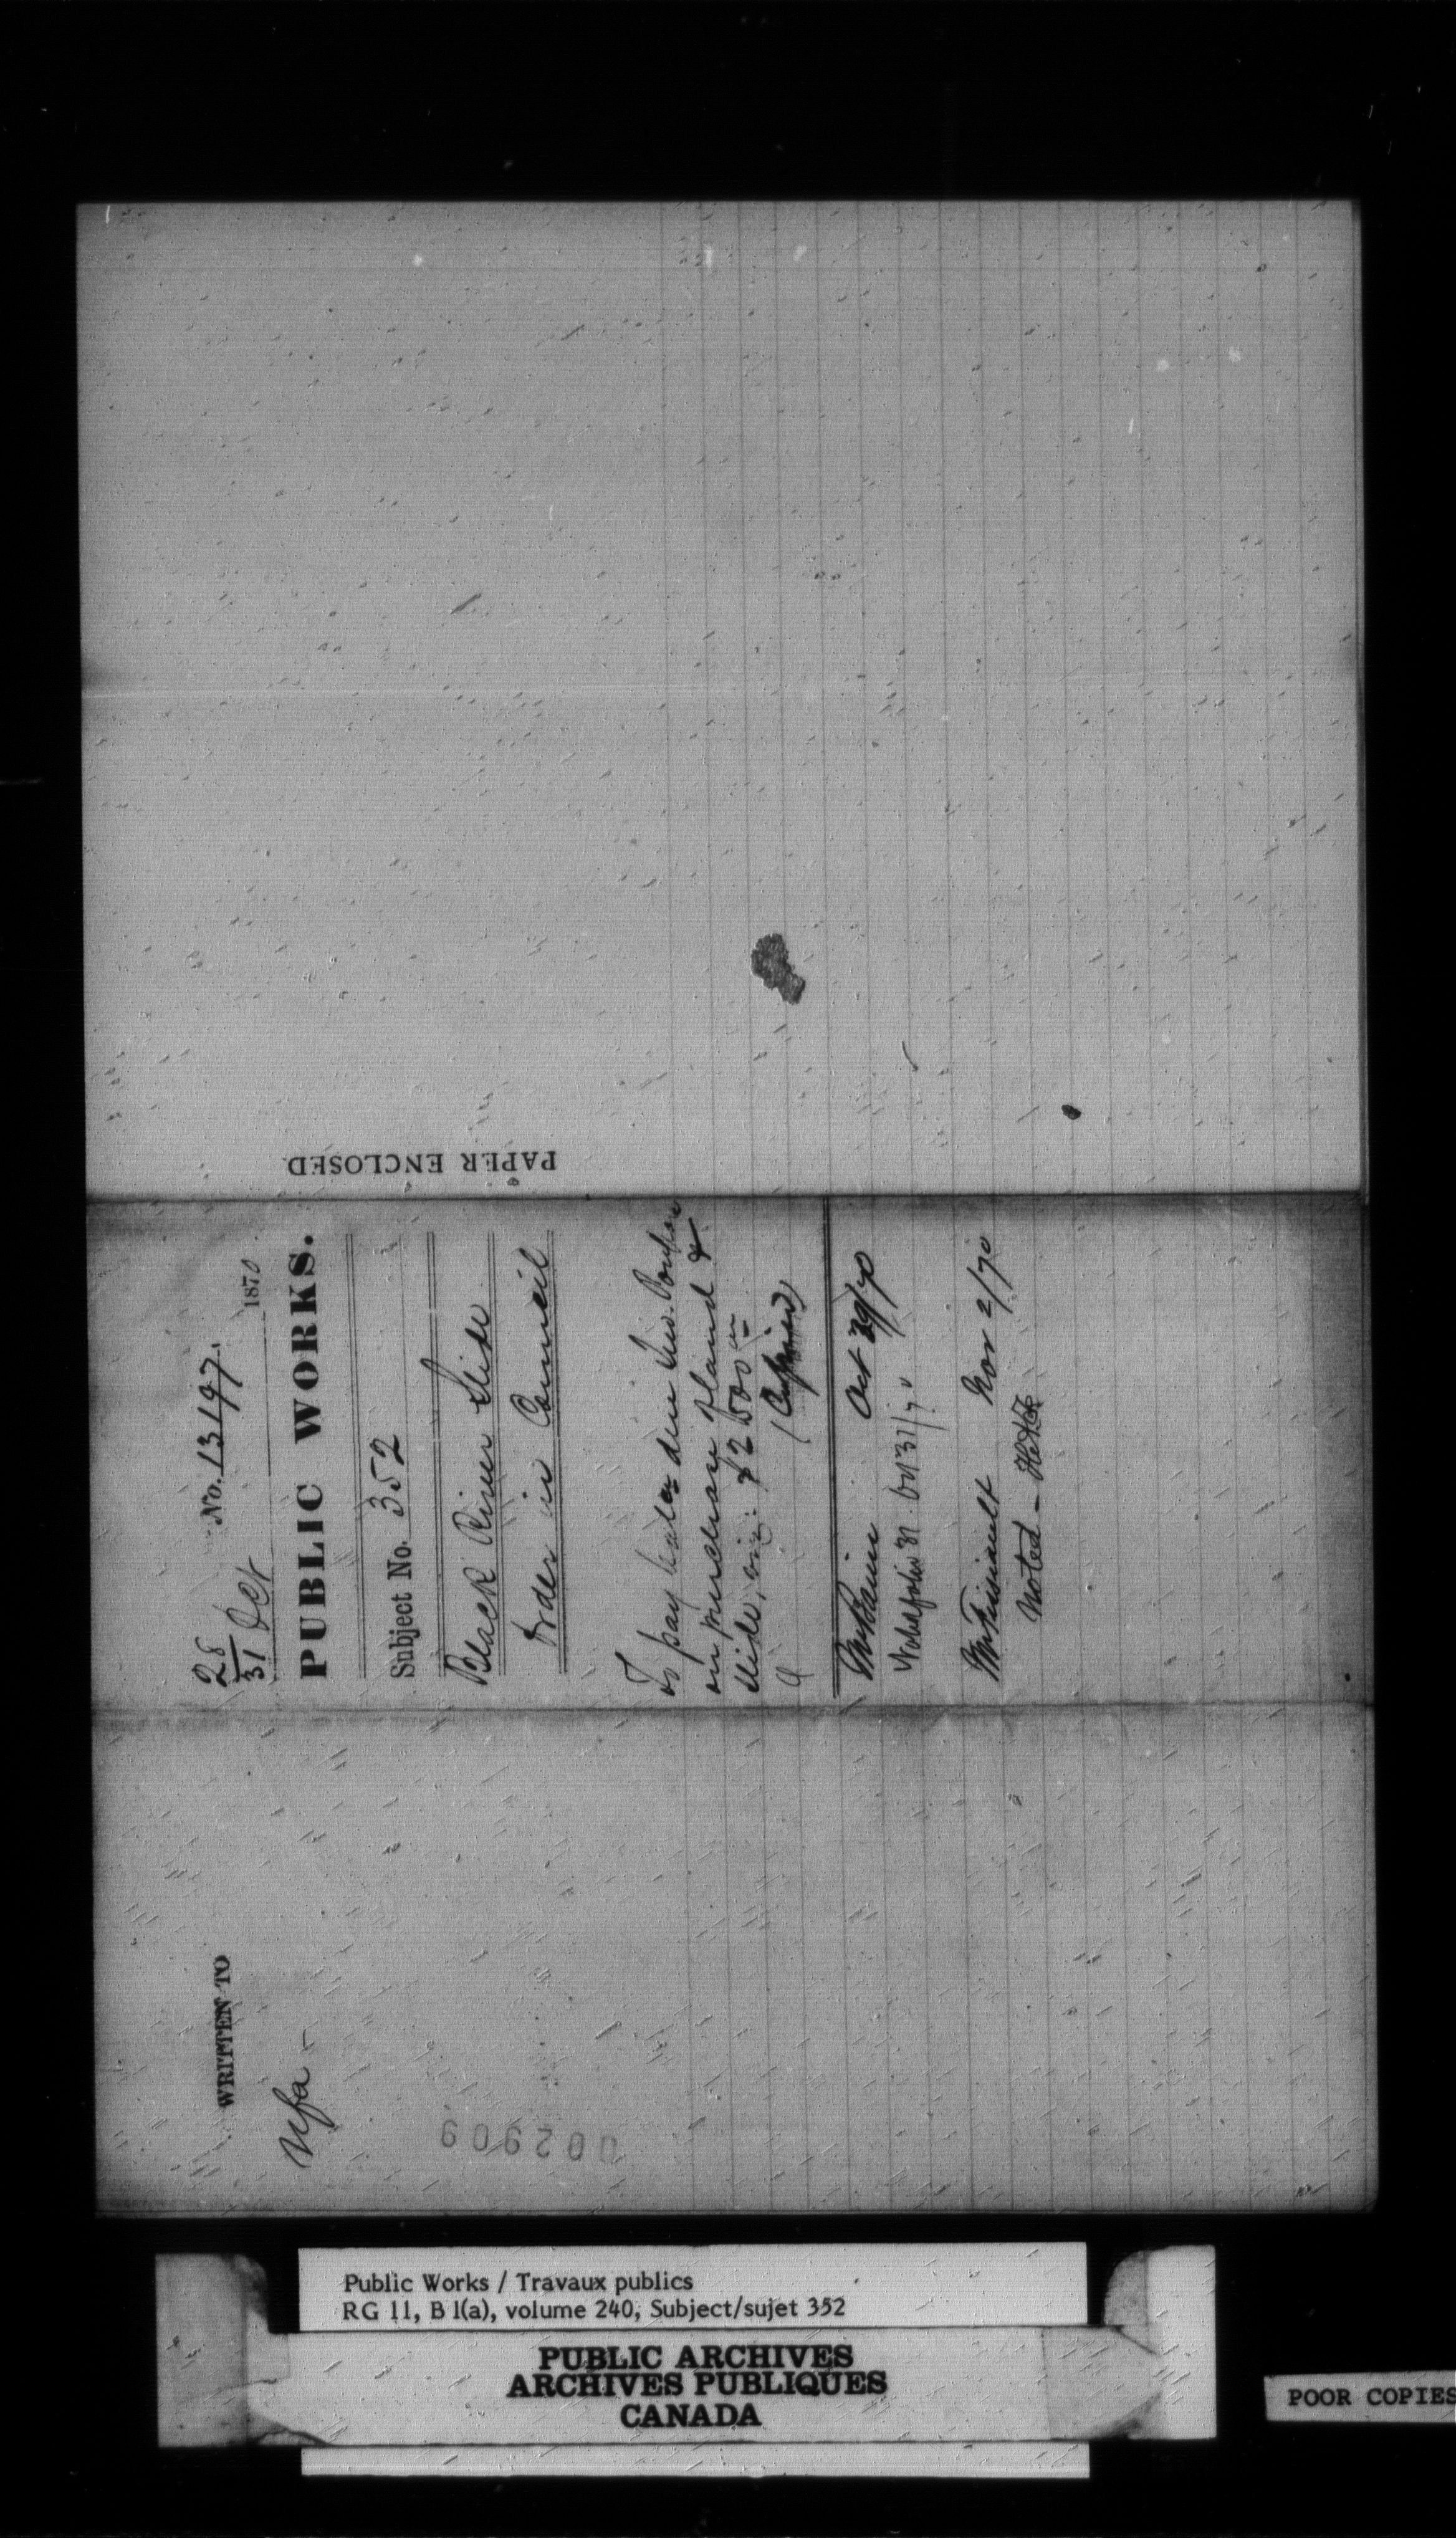 28/31 Oct No. 13197. 1870
PUBLIC WORKS.
Subject No. 352
Black River Slide
Order in Council
To pay balance due
on purchase of land &
slide, viz: $2500
(Copies)
Mr Baine Oct 29/70
Oct 31/70
Nov 2/70
Noted
PAPER ENCLOSED
WRITTEN TO
002909
Public Works / Travaux publics
RG 11, B 1(a), volume 240, Subject/sujet 352
PUBLIC ARCHIVES
ARCHIVES PUBLIQUES
CANADA
POOR COPIES